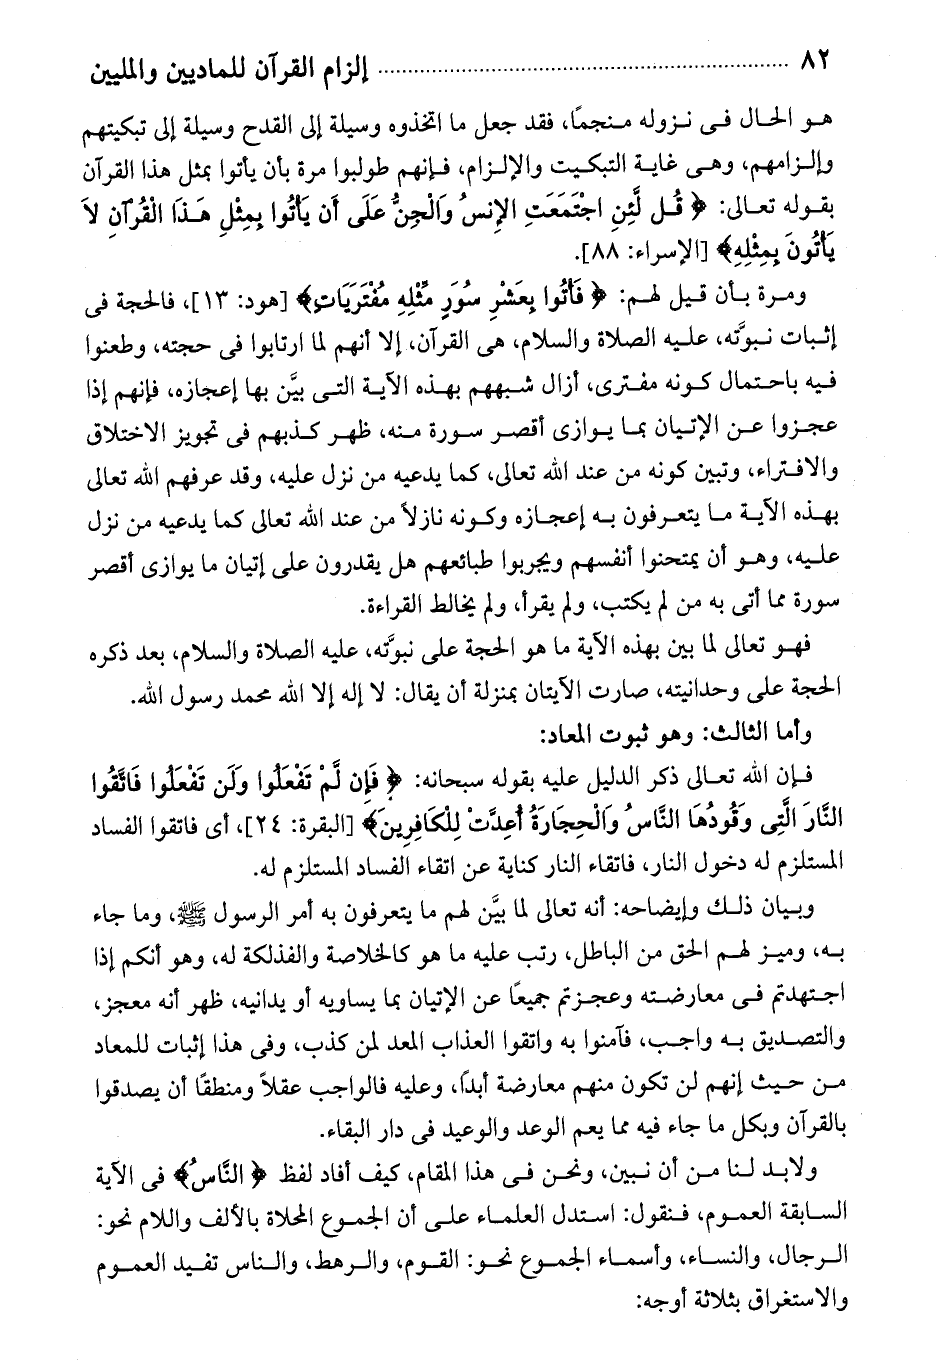 ٨٢ ............ إلزام القرآن للماديين والمليين
هو الحال فى نزوله منجمًا، فقد جعل ما اتخذوه وسيلة إلى القدح وسيلة إلى تبكيتهم
وإلزامهم، وهى غاية التبكيت والإلزام، فإنهم طولبوا مرة بأن يأتوا بمثل هذا القرآن
بقوله تعالى: ﴿قُل لَّئِنِ اجْتَمَعَتِ الإِنسُ وَالْجِنُّ عَلَى أَن يَأْتُوا بِمِثْلِ هَذَا الْقُرْآنِ لاَ
يَأْتُونَ بِمِثْلِهِ﴾ [الإسراء: ٨٨].
ومرة بأن قيل لهم: ﴿فَأْتُوا بِعَشْرِ سُوَرٍ مِّثْلِهِ مُفْتَرَيَاتٍ﴾ [هود: ١٣]، فالحجة فى
إثبات نبوَّته، عليه الصلاة والسلام، هى القرآن، إلا أنهم لما ارتابوا فى حجته، وطعنوا
فيه باحتمال كونه مفترى، أزال شبههم بهذه الآية التى بيَّن بها إعجازه، فإنهم إذا
عجزوا عن الإتيان بما يوازى أقصر سورة منه، ظهر كذبهم فى تجويز الاختلاق
والافتراء، وتبين كونه من عند الله تعالى، كما يدعيه من نزل عليه، وقد عرفهم الله تعالى
بهذه الآية ما يتعرفون به إعجازه وكونه نازلاً من عند الله تعالى كما يدعيه من نزل
عليه، وهو أن يمتحنوا أنفسهم ويجربوا طبائعهم هل يقدرون على إتيان ما يوازى أقصر
سورة مما أتى به من لم يكتب، ولم يقرأ، ولم يخالط القراءة.
فهو تعالى لما بين بهذه الآية ما هو الحجة على نبوَّته، عليه الصلاة والسلام، بعد ذكره
الحجة على وحدانيته، صارت الآيتان بمنزلة أن يقال: لا إله إلا الله محمد رسول الله.
وأما الثالث: وهو ثبوت المعاد:
فإن الله تعالى ذكر الدليل عليه بقوله سبحانه: ﴿فَإِن لَّمْ تَفْعَلُوا وَلَن تَفْعَلُوا فَاتَّقُوا
النَّارَ الَّتِى وَقُودُهَا النَّاسُ وَالْحِجَارَةُ أُعِدَّتْ لِلْكَافِرِينَ﴾ [البقرة: ٢٤]، أى فاتقوا الفساد
المستلزم له دخول النار، فاتقاء النار كناية عن اتقاء الفساد المستلزم له.
وبيان ذلك وإيضاحه: أنه تعالى لما بيَّن لهم ما يتعرفون به أمر الرسول ﷺ، وما جاء
به، وميز لهم الحق من الباطل، رتب عليه ما هو كالخلاصة والفذلكة له، وهو أنكم إذا
اجتهدتم فى معارضته وعجزتم جميعًا عن الإتيان بما يساويه أو يدانيه، ظهر أنه معجز،
والتصديق به واجب، فآمنوا به واتقوا العذاب المعد لمن كذب، وفى هذا إثبات للمعاد
من حيث إنهم لن تكون منهم معارضة أبدًا، وعليه فالواجب عقلاً ومنطقًا أن يصدقوا
بالقرآن وبكل ما جاء فيه مما يعم الوعد والوعيد فى دار البقاء.
ولابد لنا من أن نبين، ونحن فى هذا المقام، كيف أفاد لفظ ﴿النَّاسُ﴾ فى الآية
السابقة العموم، فنقول: استدل العلماء على أن الجموع المحلاة بالألف واللام نحو:
الرجال، والنساء، وأسماء الجموع نحو: القوم، والرهط، والناس تفيد العموم
والاستغراق بثلاثة أوجه: